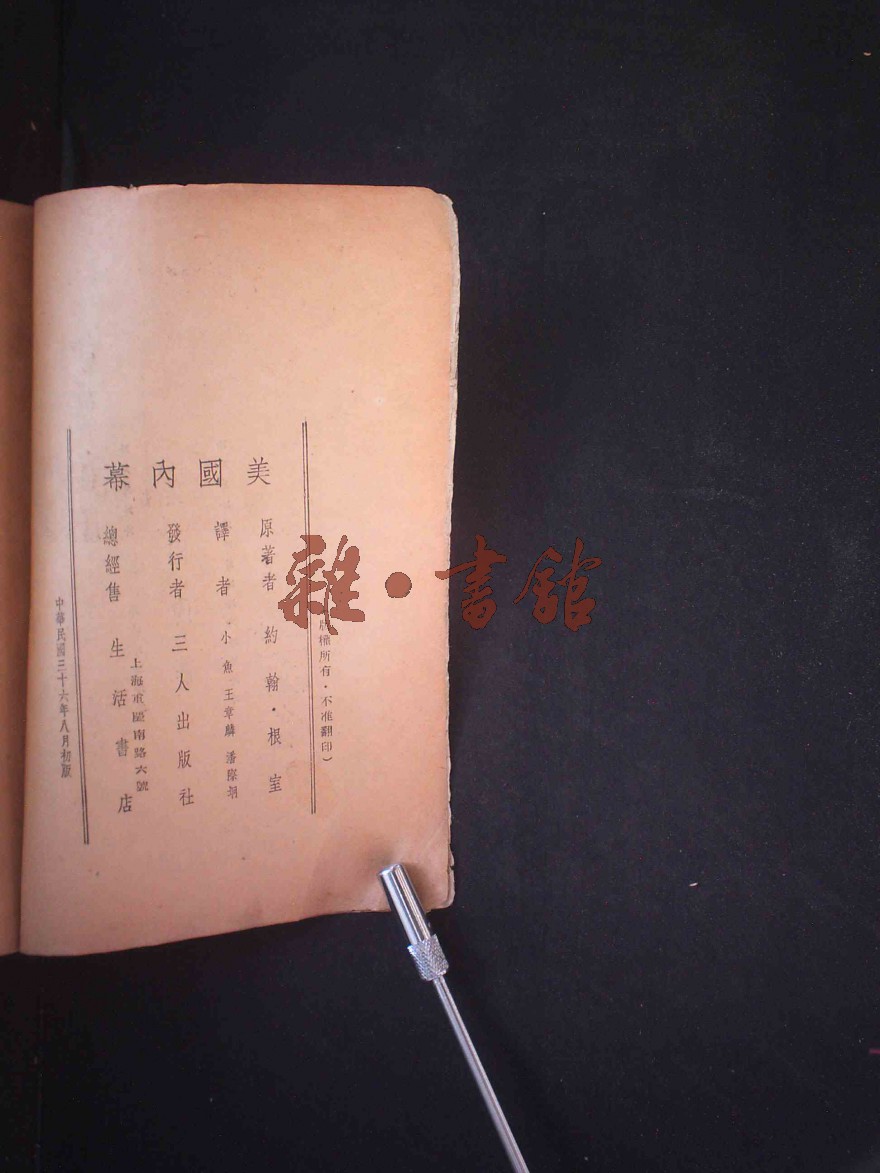 美國內幕
版權所有·不准翻印）
原著者 約翰·根室
譯者 小魚 王韋麟 潘際坰
發行者 三人出版社
總經售 生活書店
上海重慶南路六號
中華民國三十六年八月初版
雜·書館